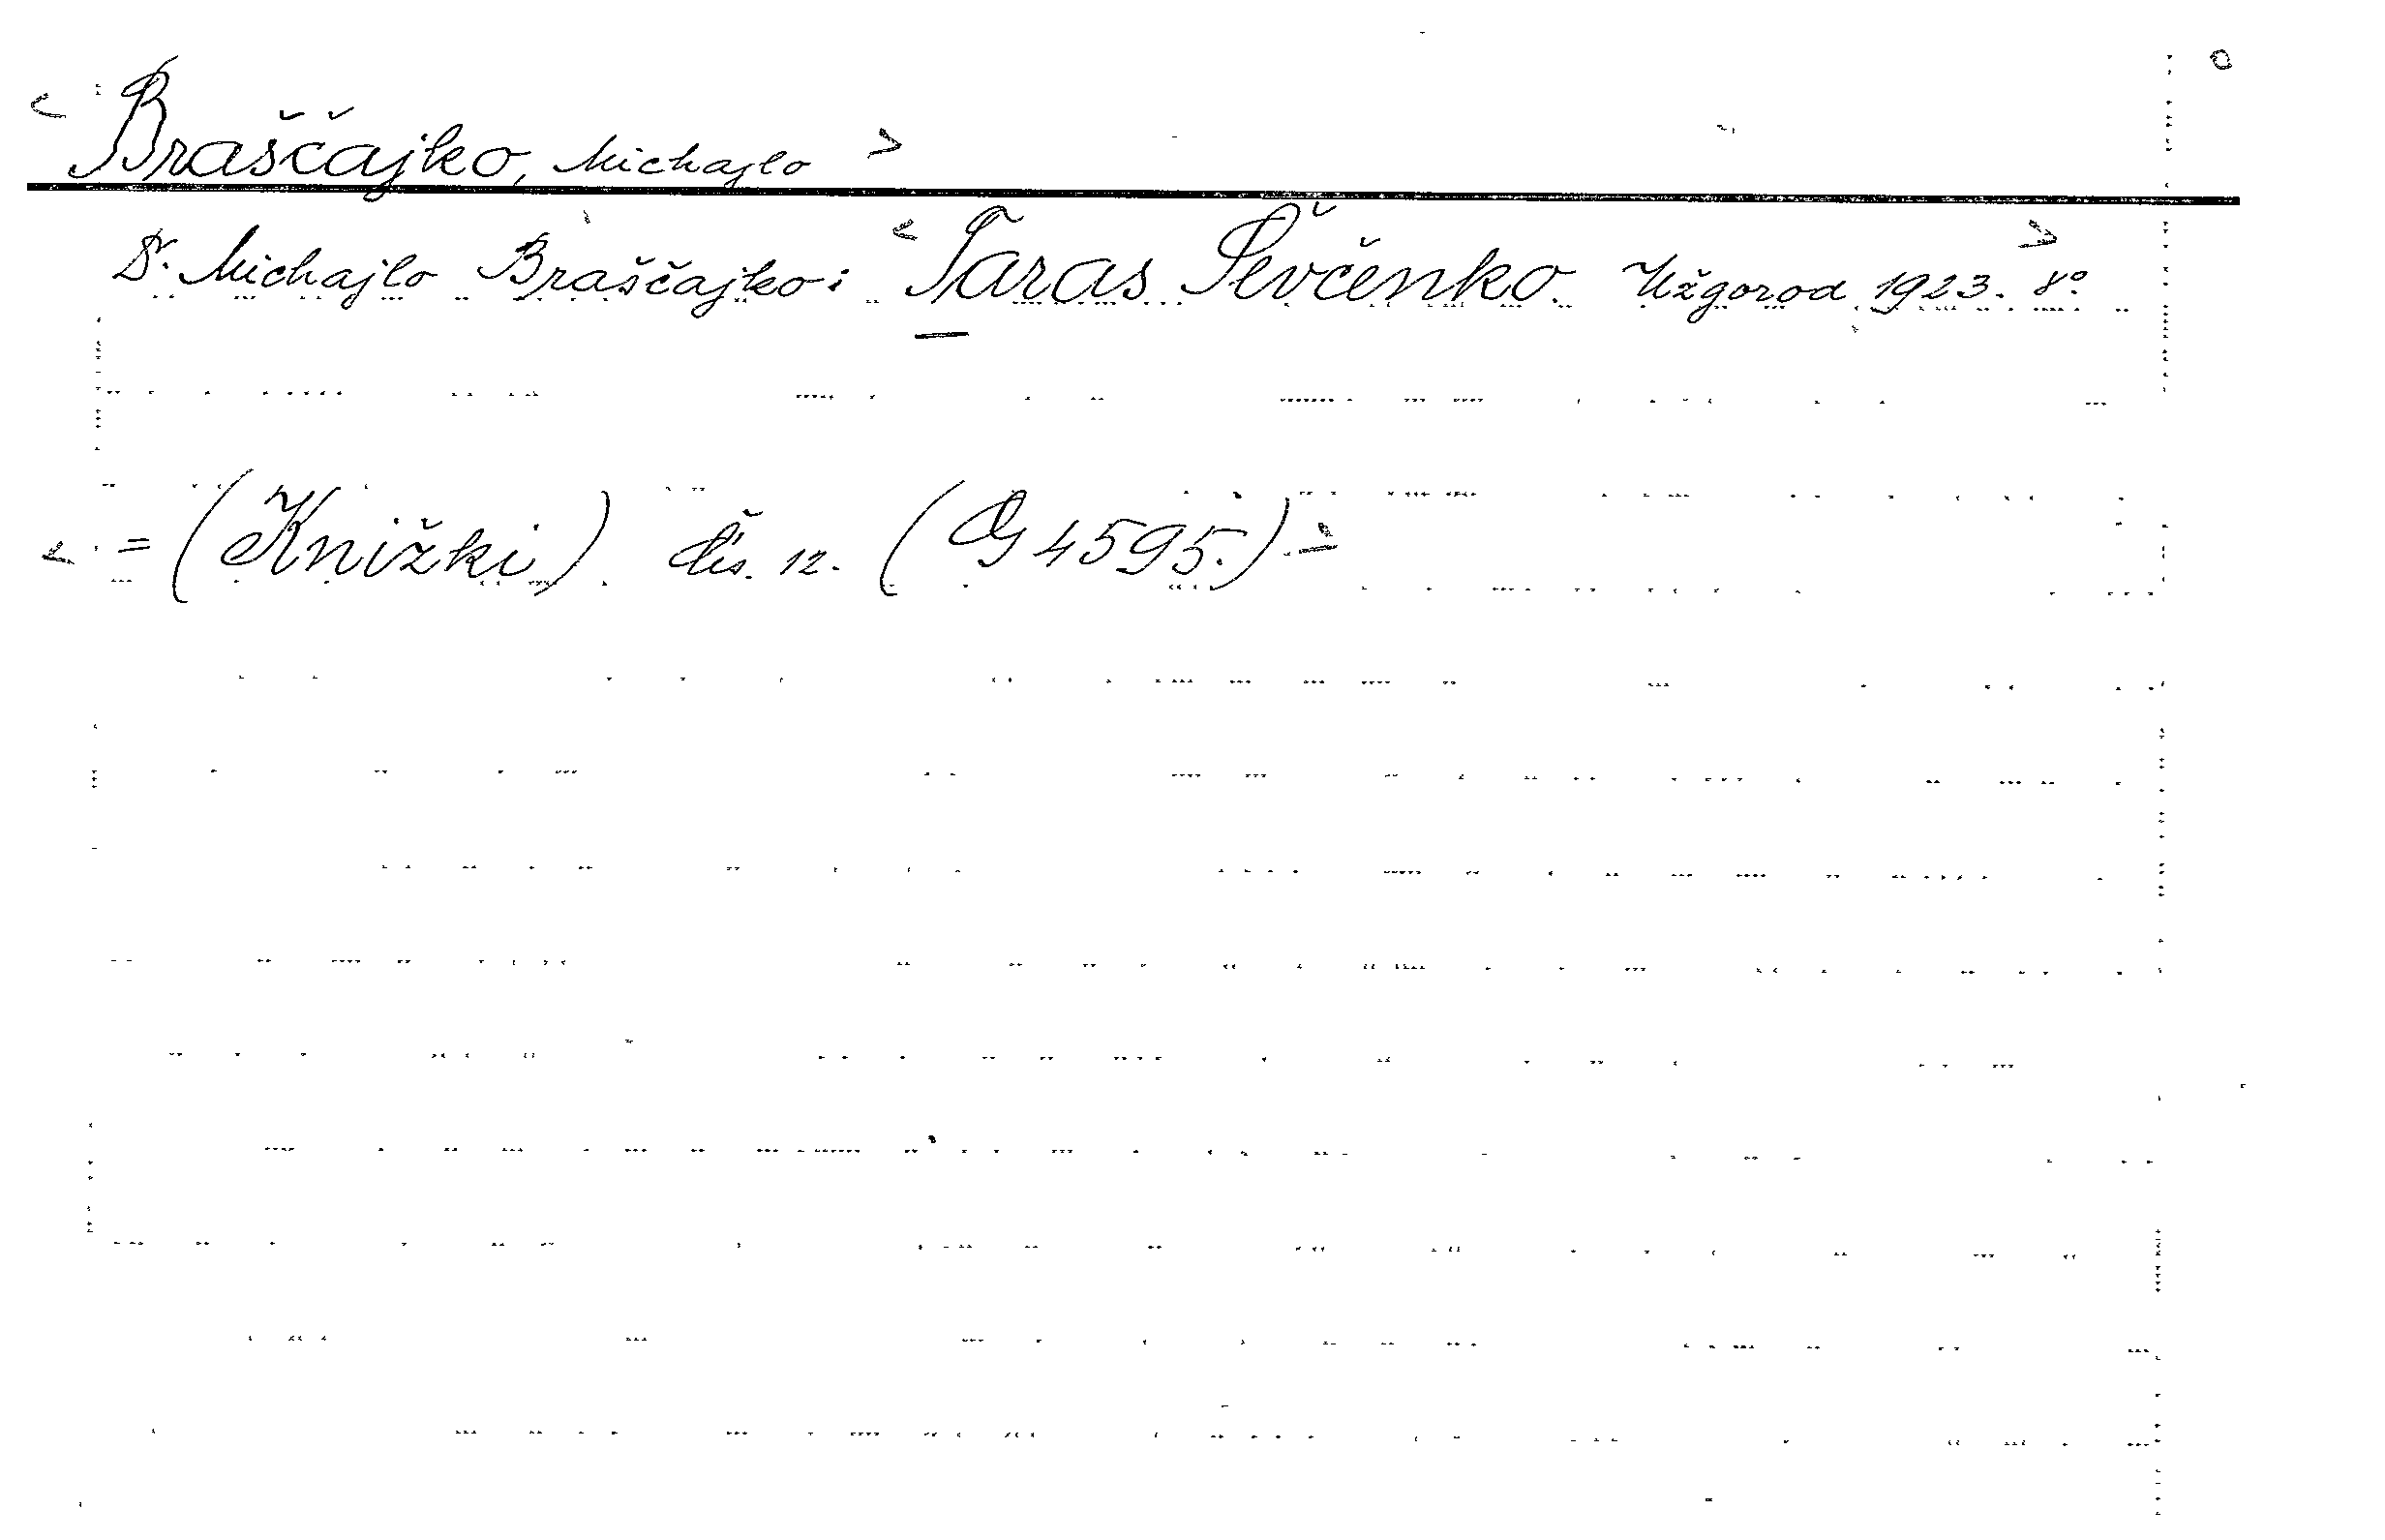 < Braščajko, Michajlo >
Dr. Michajlo Braščajko: < Taras Ševčenko. Užgorod 1923. 8°. >
< = (Knižki) čís. 12. (G 4595.) = >